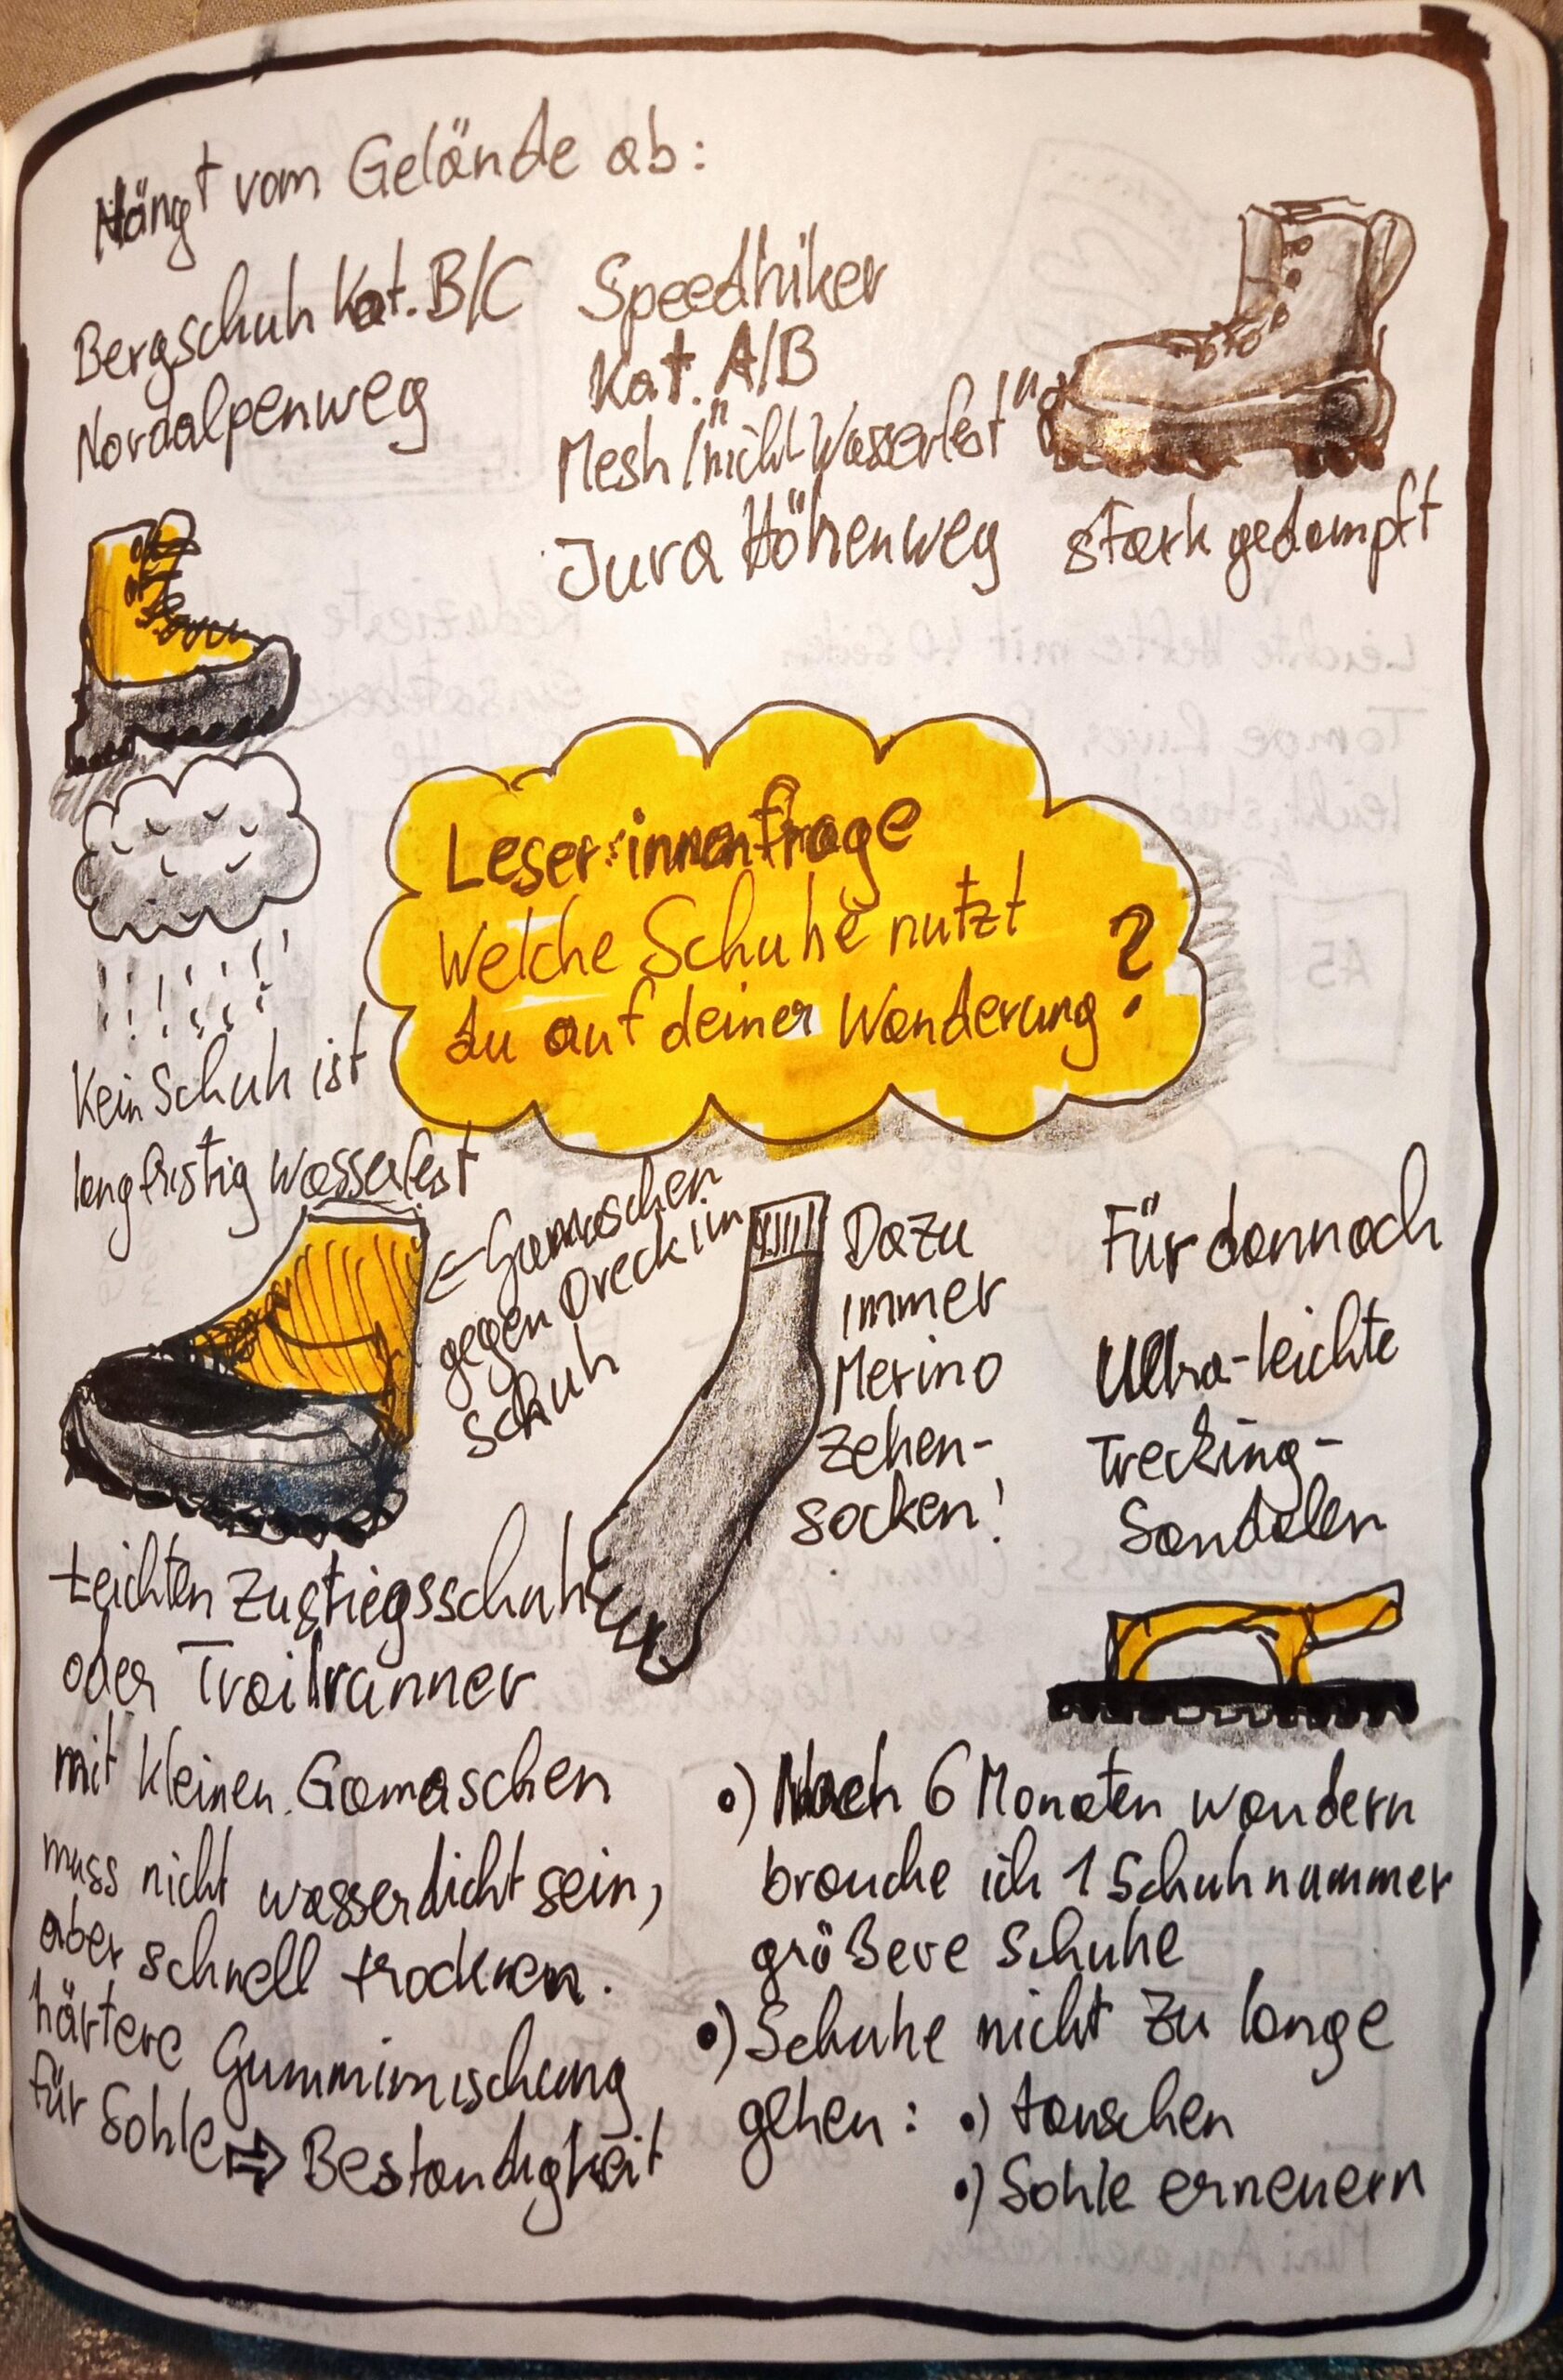 Hängt vom Gelände ab:
Bergschuh Kat. B/C
Nordalpenweg
Speedhiker
Kat. A/B
Mesh / "nicht Wasserfest"
Jura Höhenweg
stark gedämpft
Leser:innenfrage
Welche Schuhe nutzt
du auf deiner Wanderung?
Kein Schuh ist
langfristig wasserfest
← Gamaschen
gegen Dreck im
Schuh
Dazu
immer
Merino
Zehen-
socken!
Für dannach
Ultra-leichte
Trecking-
Sandalen
Leichten Zustiegsschuh
oder Trailrunner
mit kleinen Gamaschen
muss nicht wasserdicht sein,
aber schnell trocknen.
härtere Gummimischung
für Sohle ⇒ Beständigkeit
•) Nach 6 Monaten wandern
brauche ich 1 Schuhnummer
größere Schuhe
•) Schuhe nicht zu lange
gehen: •) tauschen
•) Sohle erneuern